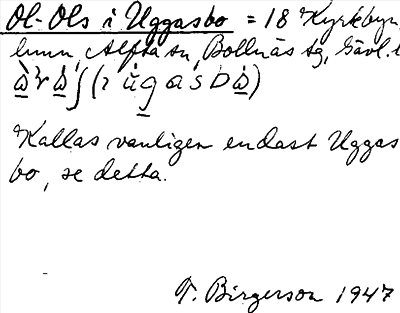 Ol-Ols i Uggasbo = 18 Kyrkbyn,
lunn, Alfta sn, Bollnäs tg, Gävl. l
Kallas vanligen endast Uggas
bo, se detta.
T. Birgerson 1947